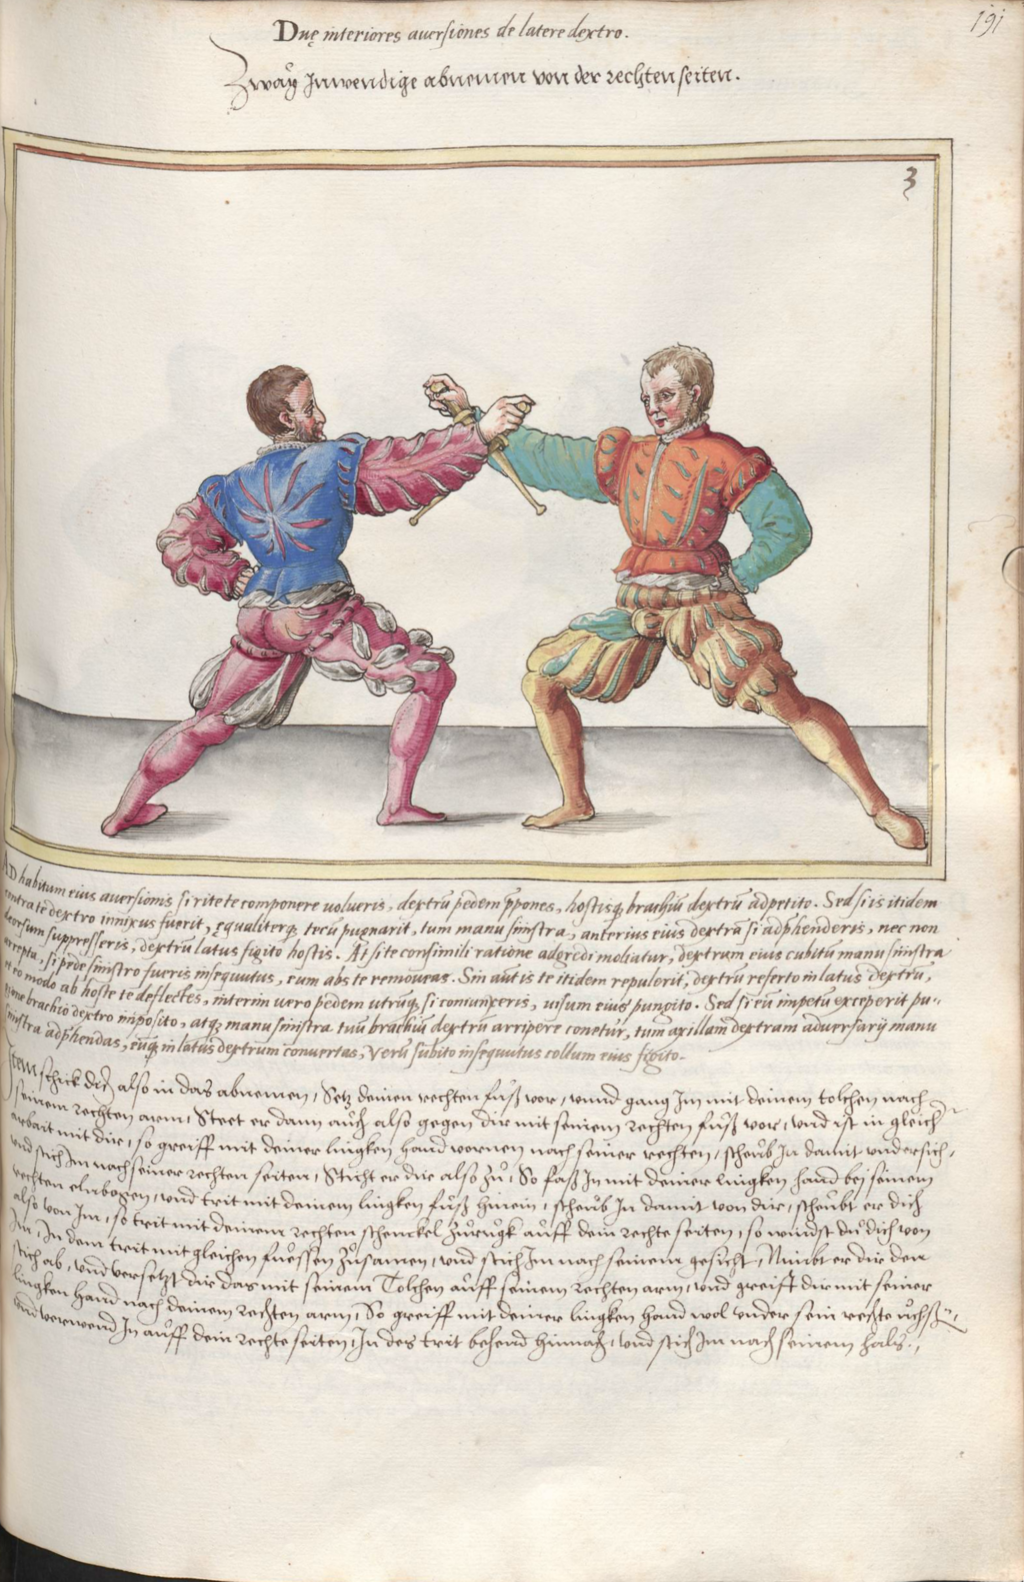 191
Duę interiores auersiones de latere dextro.
Zwaÿ Inwendige abnemen von der rechten seiten.
3
AD habitum eius auersionis si rite te componere uolueris, dextrū pedem p̱pones, hostisq; brachiū dextrū adpetito. Sed si is itidem
contra te dextro innixus fuerit, ęqualiterq; tecū pugnarit, tum manu sinistra, anterius eius dextrā si adp̱henderis, nec non
deorsum suppresseris, dextrū latus figito hostis. At si te consimili ratione adgredi moliatur, dextrum eius cubitū manu sinistra
arrepta, si pede sinistro fueris insequutus, eum abs te remoueas. Sin aut is te itidem repulerit, dextrū referto in latus dextrū,
et eo modo ab hoste te deflectes, interim uero pedem utrūq; si coniunxeris, uisum eius pungito. Sed si eū impetū exceperit pu-
gione brachio dextro imposito, atq; manu sinistra tuū brachiū dextrū arripere conetur, tum axillam dextram aduersarij manu
sinistra adp̱hendas, eūq; in latus dextrum conuertas, Verū subito insequutus collum eius figito.
Item schick dich also in das abnemen, Setz deinen rechten fůß vor, vnnd gang Im mit deinem tolchen nach
seinem rechten arm, Steet er dann aůch also gegen dir mit seinem rechten fůß vor, vnd ist in gleich
arbait mit dir, so greiff mit deiner lingken hand vornen nach seiner rechten, scheůb In damit vndersich,
vnd stich Im nach seiner rechten seiten, Sticht er dir also zů, So faß In mit deiner lingken hand bei seinem
rechten elnbogen, vnd trit mit deinem lingken fůß hinein, scheůb In damit von dir, scheůbt er dich
also von Im, so trit mit deinem rechten schenckel zůrůgk aůff dein rechte seiten, so windst dů dich von
Im, In dem trit mit gleichen fůessen zůsamen, vnd stich Im nach seinem gesicht, Nimbt er dir den
stich ab, vnd versetzt dir das mit seinem Tolchen aůff seinem rechten arm, vnd greifft dir mit seiner
lingken hand nach deinem rechten arm, So greiff mit deiner lingken hand wol vnder sein rechte ůchsß,
vnd verwend In aůff dein rechte seiten, In des trit behend hinnach, vnd stich Im nach seinem hals.,